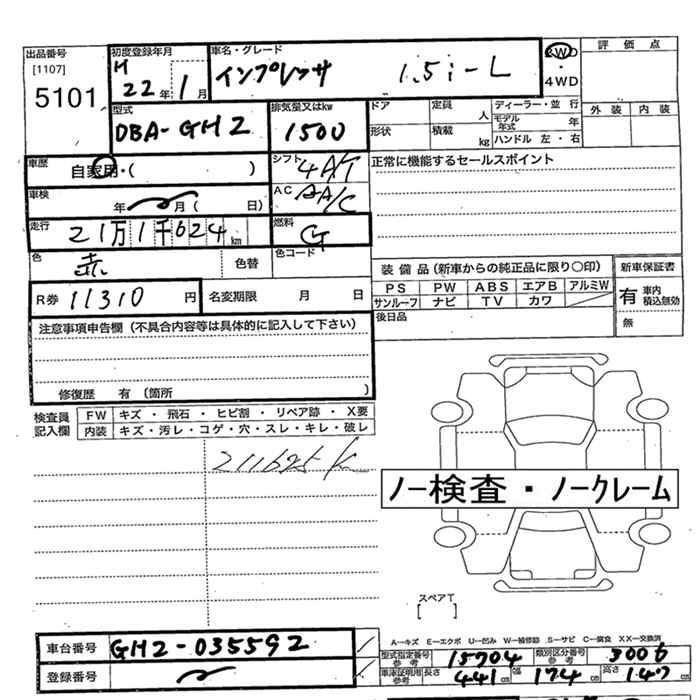 出品番号 初度登録年月 車名・グレード 2WD ・ 4WD 評価点
[1107] H 22年 1月 インプレッサ 1.5i-L 外装 内装
5101
型式 DBA-GH2 排気量又はkw 1500 ドア 定員 人 ディーラー・並行
形状 積載 kg モデル年式 年
ハンドル 左・右
車歴 自家用・( ) シフト 4AT 正常に機能するセールスポイント
車検 年 月( 日) AC AA/C
走行 21万1千624km 燃料 G
色 赤 色替 色コード 装備品(新車からの純正品に限り○印) 新車保証書
PS PW ABS エアB アルミW 有 車内 積込無効
R券 11310円 名変期限 月 日 サンルーフ ナビ TV カワ
後日品 無
注意事項申告欄(不具合内容等は具体的に記入して下さい)
修復歴 有 〔箇所 〕
検査員 FW キズ・飛石・ヒビ割・リペア跡・X要
記入欄 内装 キズ・汚レ・コゲ・穴・スレ・キレ・破レ
211625 km
ノー検査・ノークレーム
スペアT
[ ]
A-キズ E-エクボ U-凹み W-補修跡 S-サビ C-腐食 XX-交換済
車台番号 GH2-035592
型式指定番号 参考 15704 類別区分番号 参考 3006
登録番号
車庫証明用 参考 長さ 441cm 幅 174cm 高さ 147